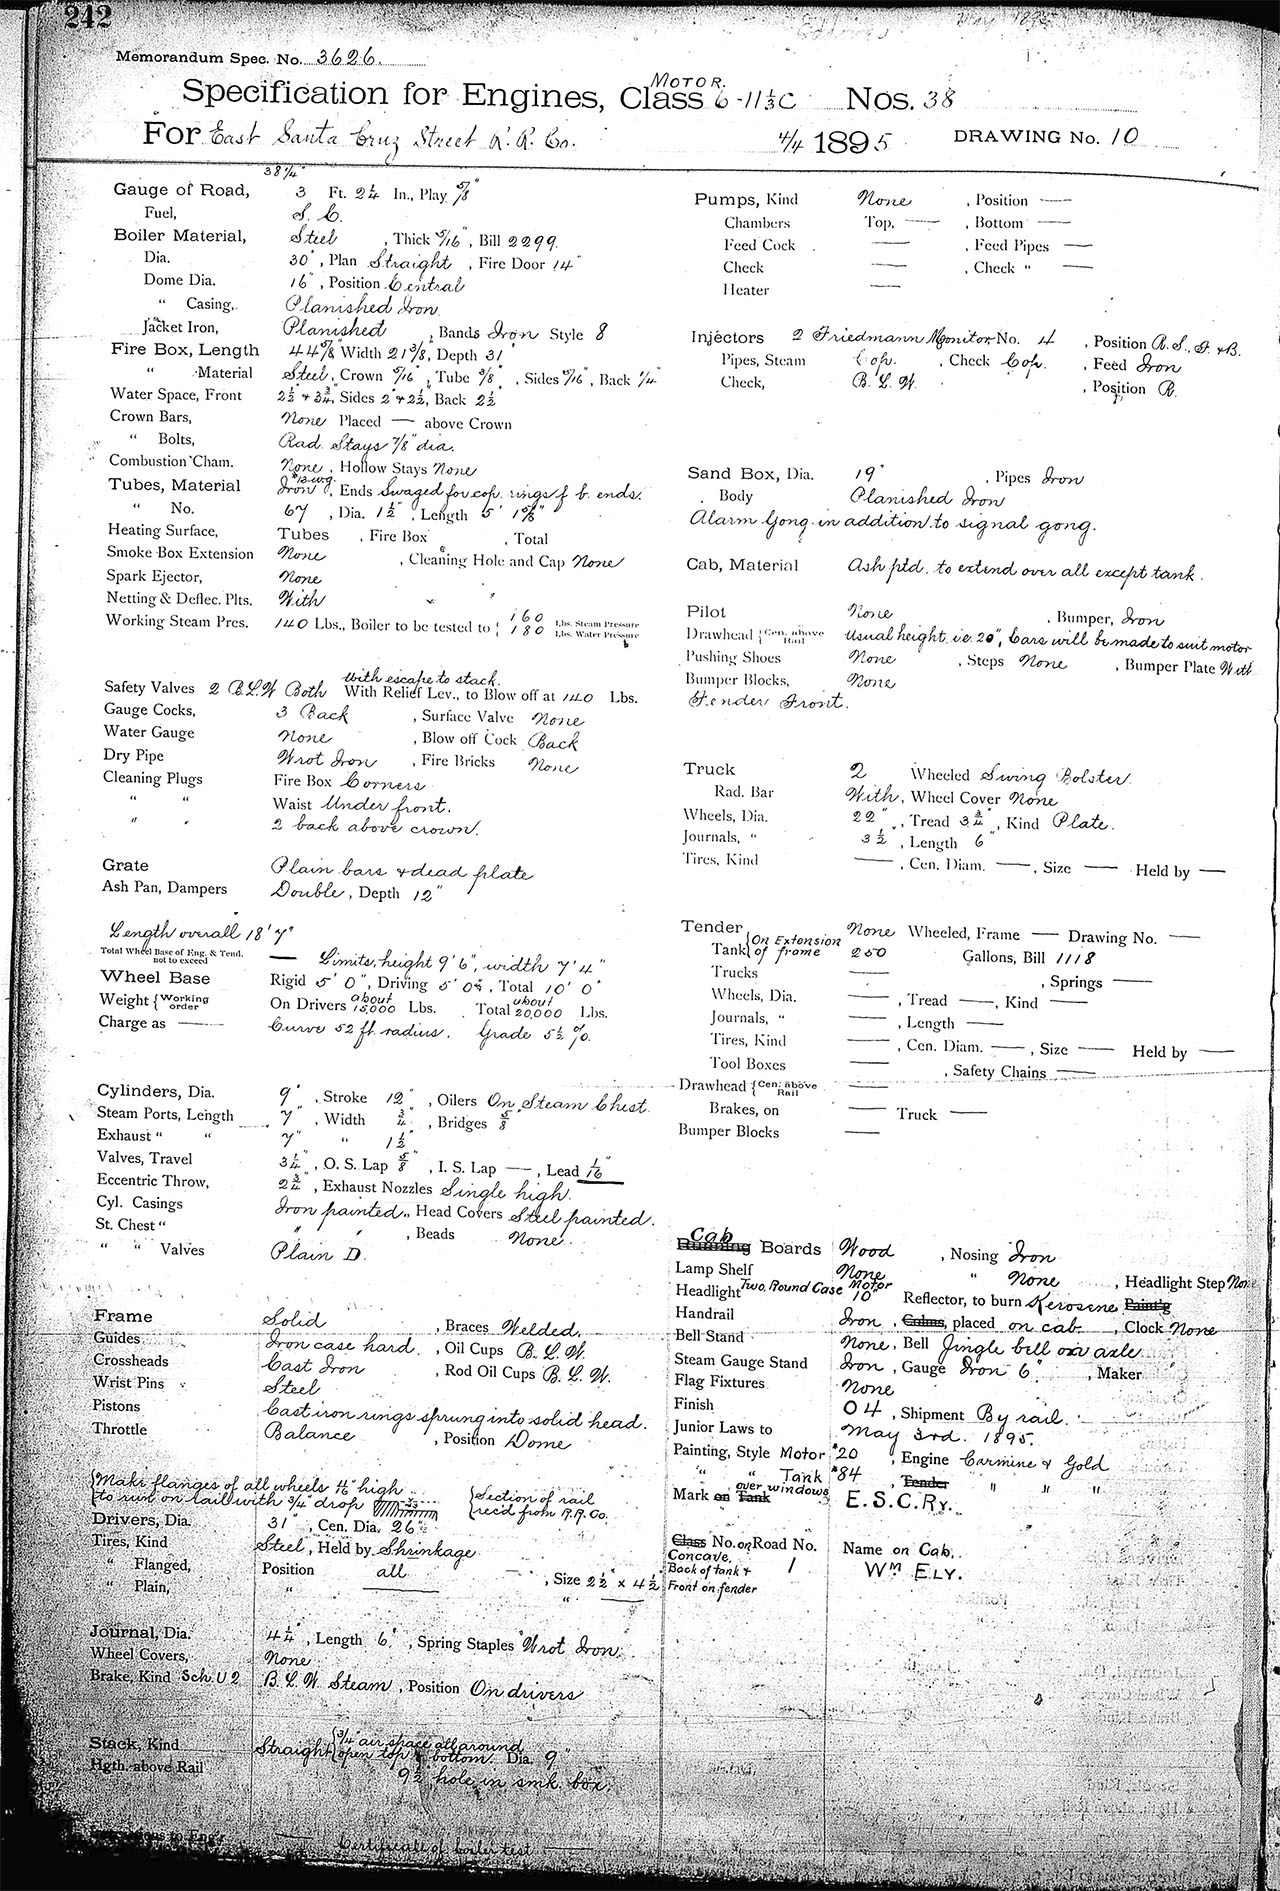 242
Memorandum Spec. No. 3626.
MOTOR.
Specification for Engines, Class 6-11⅓C Nos. 38
For East Santa Cruz Street R. R. Co. 4/4 1895 DRAWING No. 10
38¼"
Gauge of Road, 3 Ft. 2¼ In., Play ⅝"
Fuel, S. C.
Boiler Material, Steel , Thick 5/16" , Bill 2299.
Dia. 30" , Plan Straight , Fire Door 14"
Dome Dia. 16" , Position Central
" Casing, Planished Iron.
Jacket Iron, Planished , Bands Iron Style 8
Fire Box, Length 44⅝" Width 21⅜, Depth 31"
" Material Steel, Crown 5/16" , Tube ⅜" , Sides 5/16" , Back ¼"
Water Space, Front 2½" + 3¾", Sides 2" + 2½", Back 2½"
Crown Bars, None Placed — above Crown
" Bolts, Rad. Stays ⅞" dia.
Combustion Cham. None , Hollow Stays None
#13 w.g.
Tubes, Material Iron , Ends Swaged for cop. rings f. b. ends.
" No. 67 , Dia. 1½" , Length 5' 1⅝"
Heating Surface, Tubes , Fire Box , Total
Smoke Box Extension None , Cleaning Hole and Cap None
Spark Ejector, None
Netting & Deflec. Plts. With
Working Steam Pres. 140 Lbs., Boiler to be tested to { 160 Lbs. Steam Pressure
180 Lbs. Water Pressure
with escape to stack.
Safety Valves 2 B.L.W Both With Relief Lev., to Blow off at 140 Lbs.
Gauge Cocks, 3 Back , Surface Valve None
Water Gauge None , Blow off Cock Back
Dry Pipe Wrot Iron , Fire Bricks None
Cleaning Plugs Fire Box Corners
" " Waist Under front.
" " 2 back above crown.
Grate Plain bars + dead plate
Ash Pan, Dampers Double , Depth 12"
Length overall 18' 7"
Total Wheel Base of Eng. & Tend.
not to exceed — Limits, height 9' 6", width 7' 4"
Wheel Base Rigid 5' 0" , Driving 5' 0" , Total 10' 0"
Weight { Working order On Drivers about 15,000 Lbs. Total about 20,000 Lbs.
Charge as — Curve 52 ft. radius. Grade 5½ %.
Cylinders, Dia. 9" , Stroke 12" , Oilers On Steam Chest.
Steam Ports, Length 7" , Width ¾" , Bridges ⅝"
Exhaust " " 7" " 1½"
Valves, Travel 3¼" , O. S. Lap ⅝" , I. S. Lap — , Lead 1/16"
Eccentric Throw, 2¾" , Exhaust Nozzles Single high.
Cyl. Casings Iron painted , Head Covers Steel painted.
St. Chest " " " , Beads None.
" " Valves Plain D.
Frame Solid , Braces Welded.
Guides Iron case hard. , Oil Cups B. L. W.
Crossheads Cast Iron , Rod Oil Cups B. L. W.
Wrist Pins Steel
Pistons Cast iron rings sprung into solid head.
Throttle Balance , Position Dome
{ Make flanges of all wheels ½" high
to run on rail with ¾" drop { Section of rail
rec'd from R.R. Co.
Drivers, Dia. 31" , Cen. Dia. 26"
Tires, Kind Steel , Held by Shrinkage
" Flanged, Position all , Size 2½" x 4½
" Plain, " — " —
Journal, Dia. 4¼" , Length 6" , Spring Staples Wrot Iron.
Wheel Covers, None
Brake, Kind Sch. U 2 B. L. W. Steam , Position On drivers
Stack, Kind Straight { ¾" air space all around
open top & bottom. Dia. 9"
Hgth. above Rail 9½ hole in smk. box.
Certificate of boiler test
Pumps, Kind None , Position —
Chambers Top, — , Bottom —
Feed Cock — , Feed Pipes —
Check — , Check " —
Heater —
Injectors 2 Friedmann Monitor No. 4 , Position R. S., F. + B.
Pipes, Steam Cop. , Check Cop. , Feed Iron
Check, B. L. W. , Position R.
Sand Box, Dia. 19" , Pipes Iron
Body Planished Iron
Alarm Gong in addition to signal gong.
Cab, Material Ash ptd. to extend over all except tank.
Pilot None , Bumper, Iron
Drawhead { Cen. above Rail Usual height i.e. 20", Cars will be made to suit motor
Pushing Shoes None , Steps None , Bumper Plate With
Bumper Blocks, None
Fender Front.
Truck 2 Wheeled Swing Bolster.
Rad. Bar With , Wheel Cover None
Wheels, Dia. 22" , Tread 3¾" , Kind Plate.
Journals, " 3½" , Length 6"
Tires, Kind — , Cen. Diam. — , Size — Held by —
Tender None Wheeled, Frame — Drawing No. —
Tank { On Extension of frame 250 Gallons, Bill 1118
Trucks — , Springs —
Wheels, Dia. — , Tread — , Kind —
Journals, " — , Length —
Tires, Kind — , Cen. Diam. — , Size — Held by —
Tool Boxes — , Safety Chains —
Drawhead { Cen. above Rail —
Brakes, on — Truck —
Bumper Blocks —
Cab
Running Boards Wood , Nosing Iron
Lamp Shelf None " None , Headlight Step None
Headlight Two Round Case Motor 10" Reflector, to burn Kerosene Paint'g
Handrail Iron , Colms, placed on cab , Clock None
Bell Stand None , Bell Jingle bell on axle
Steam Gauge Stand Iron , Gauge Iron 6" , Maker
Flag Fixtures None
Finish O 4 , Shipment By rail.
Junior Laws to May 3rd. 1895.
Painting, Style Motor #20 , Engine Carmine & Gold
" " Tank #84 , Tender " " "
Mark on Tank over windows E. S. C. Ry.
Class No. on Road No. Name on Cab.
Concave.
Back of tank +
Front on fender
1 Wm ELY.